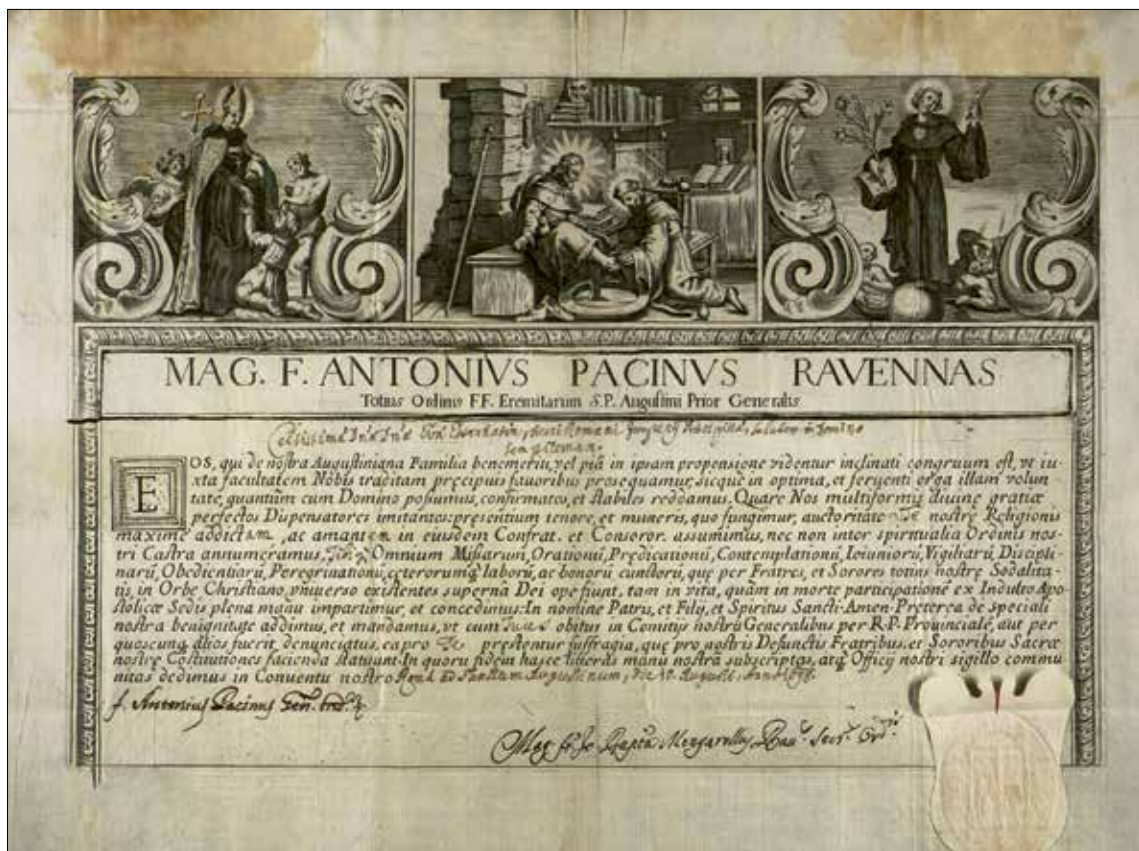 MAG. F. ANTONIVS PACINVS RAVENNAS
Totius Ordinis FF. Eremitarum S.P. Augustini Prior Generalis
Romani salutem in Domino
EOS, qui de nostra Augustiniana Familia benemeriti, vel piâ in ipsam propensione videntur inclinati congruum est, vt iu-
xta facultatem Nobis traditam prȩcipuis fauoribus prosequamur, sicquè in optima, et feruenti erga illam volun-
tate, quantùm cum Domino possumus, confirmatos, et stabiles reddamus. Quare Nos multiformis diuinȩ gratiæ
perfectos Dispensatores imitantes: prȩsentium tenore, et muneris, quo fungimur, auctoritate Te nostrȩ Religionis
maximè addictam, ac amantem in eiusdem Confrat. et Consoror. assumimus, nec non inter spiritualia Ordinis nos-
tri Castra annumeramus, Omnium Missarum, Orationū, Prȩdicationū, Contemplationū, Ieiuniorū, Vigiliarū, Discipli-
narū, Obedientiarū, Peregrinationū, cȩterorumq; laborū, ac bonorū cunctorū, quȩ per Fratres, et Sorores totius nostrȩ Sodalita-
tis, in Orbe Christiano vniuerso existentes superna Dei ope fiunt, tam in vita, quàm in morte participatione ex Indulto Apo-
stolicæ Sedis plena manu impartimur, et concedimus: In nomine Patris, et Filij, et Spiritus Sancti. Amen. Prȩterea de speciali
nostra benignitate addimus, et mandamus, vt cum tuus obitus in Comitijs nostris Generalibus per R.P. Prouincialē, aut per
quoscunq; alios fuerit denunciatus, ea pro Te prȩstentur suffragia, quȩ pro nostris Defunctis Fratribus, et Sororibus Sacræ
nostrȩ Costitutiones facienda statuunt. In quorū fidem hasce litteras manu nostrâ subscriptas, atq; Officij nostri sigillo commu-
nitas dedimus in Conuentu nostro Augustinum, Augusti
f. Antonius Pacinus Gen.
Mag. Bapta Rau. Secr. Ord.